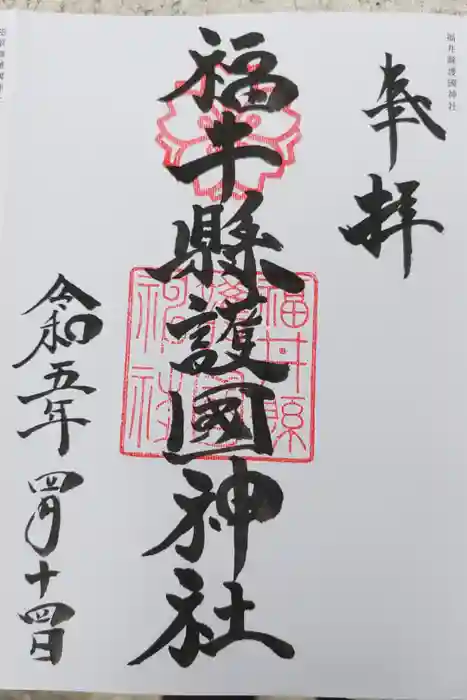 福井縣護國神社
奉拝
福井縣護國神社
福井縣護國神社
令和五年四月十四日